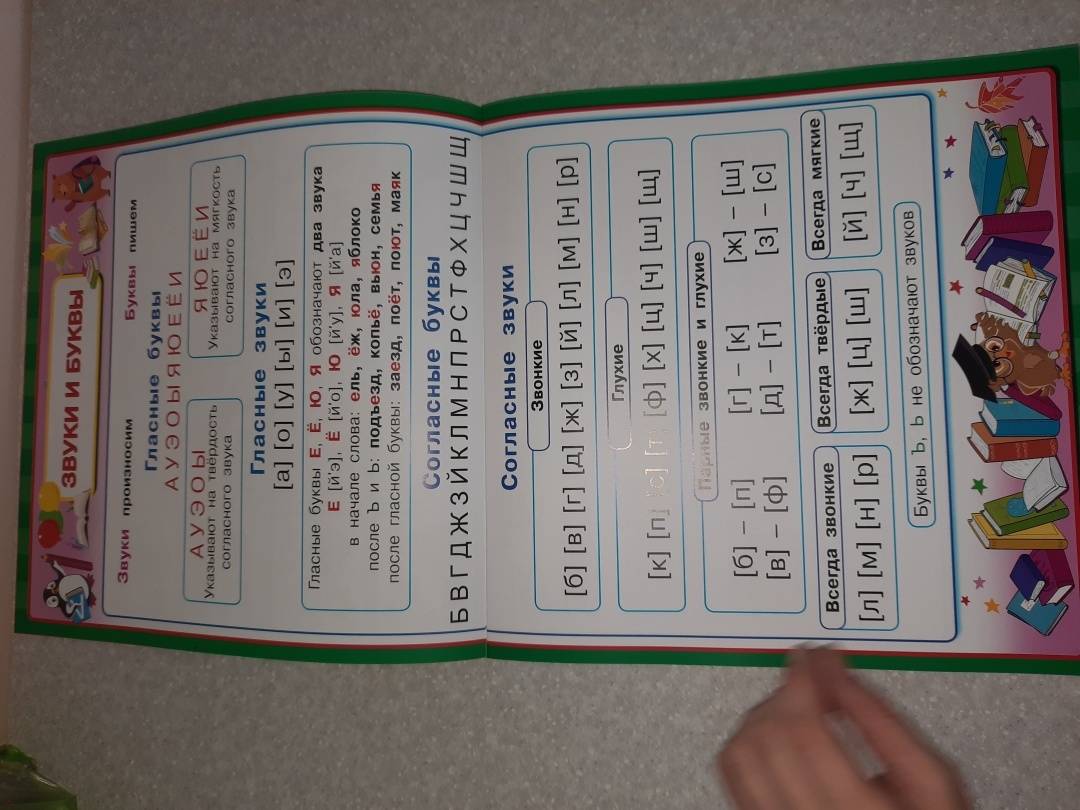 ЗВУКИ И БУКВЫ
Звуки произносим Буквы пишем
Гласные буквы
А У Э О Ы Я Ю Е Ё И
А У Э О Ы
Указывают на твёрдость
согласного звука
Я Ю Е Ё И
Указывают на мягкость
согласного звука
Гласные звуки
[а] [о] [у] [ы] [и] [э]
Гласные буквы Е, Ё, Ю, Я обозначают два звука
Е [й'э], Ё [й'о], Ю [й'у], Я [й'а]
в начале слова: ель, ёж, юла, яблоко
после Ъ и Ь: подъезд, копьё, вьюн, семья
после гласной буквы: заезд, поёт, поют, маяк
Согласные буквы
Б В Г Д Ж З Й К Л М Н П Р С Т Ф Х Ц Ч Ш Щ
Согласные звуки
Звонкие
[б] [в] [г] [д] [ж] [з] [й] [л] [м] [н] [р]
Глухие
[к] [п] [с] [т] [ф] [х] [ц] [ч] [ш] [щ]
Парные звонкие и глухие
[б] – [п] [г] – [к] [ж] – [ш]
[в] – [ф] [д] – [т] [з] – [с]
Всегда звонкие
[л] [м] [н] [р]
Всегда твёрдые
[ж] [ц] [ш]
Всегда мягкие
[й] [ч] [щ]
Буквы Ъ, Ь не обозначают звуков